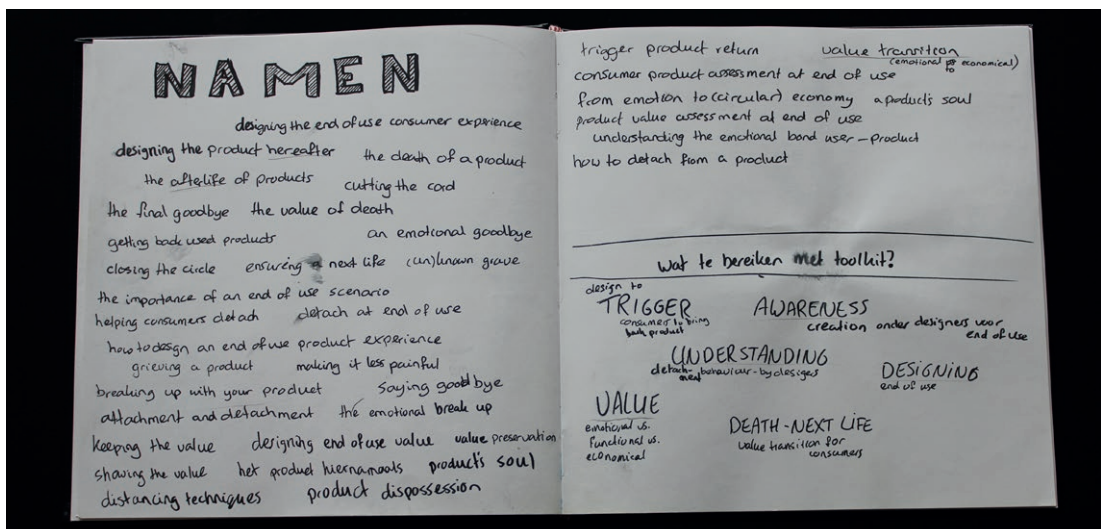 NAMEN
designing the end of use consumer experience
designing the product hereafter the death of a product
the afterlife of products cutting the cord
the final goodbye the value of death
getting back used products an emotional goodbye
closing the circle ensuring a next life (un)known grave
the importance of an end of use scenario
helping consumers detach detach at end of use
how to design an end of use product experience
grieving a product making it less painful
breaking up with your product saying goodbye
attachment and detachment the emotional break up
keeping the value designing end of use value value preservation
showing the value het product hiernamaals product's soul
distancing techniques product dispossession
trigger product return value transition
(emotional to economical)
consumer product assessment at end of use
from emotion to (circular) economy a product's soul
product value assessment at end of use
understanding the emotional bond user - product
how to detach from a product
wat te bereiken met toolkit?
design to
TRIGGER
consumers to bring
back product
AWARENESS
creation onder designers voor
end of use
UNDERSTANDING
detach-
ment behaviour - by designers
DESIGNING
end of use
VALUE
emotional vs.
functional vs.
economical
DEATH - NEXT LIFE
value transition for
consumers